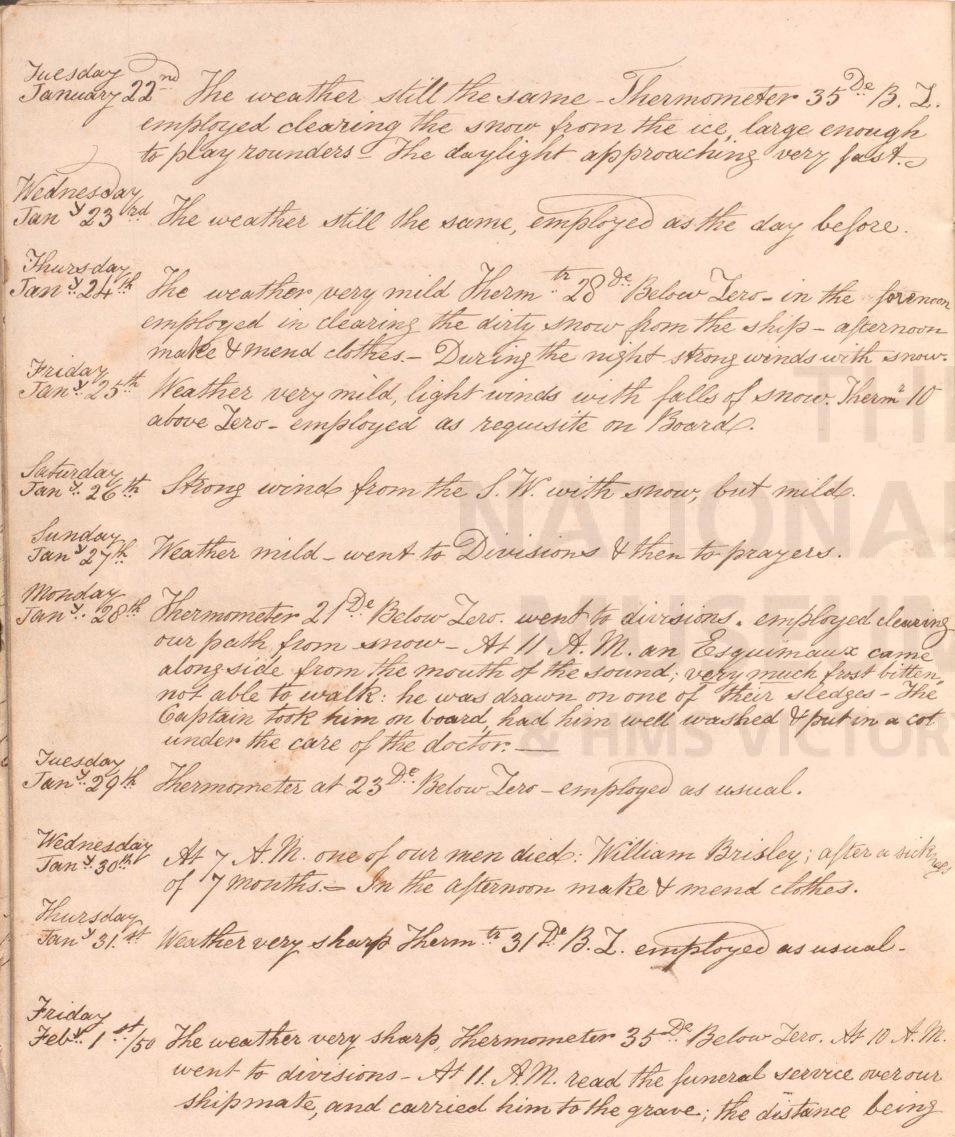 Tuesday
January 22nd The weather still the same - Thermometer 35 De B. Z.
employed clearing the snow from the ice, large enough
to play rounders - The daylight approaching very fast.
Wednesday
Jany 23rd The weather still the same, employed as the day before.
Thursday
Jany 24th The weather very mild Thermtr 28 De Below Zero - in the forenoon
employed in clearing the dirty snow from the ship - afternoon
make & mend clothes. - During the night strong winds with snow.
Friday
Jany 25th Weather very mild, light winds with falls of snow. Thermr 10
above Zero - employed as requisite on Board.
Saturday
Jany 26th Strong wind from the S. W. with snow, but mild.
Sunday
Jany 27th Weather mild - went to Divisions & then to prayers.
Monday
Jany 28th Thermometer 21 De Below Zero. went to divisions. employed clearing
our path from snow - At 11 A.M. an Esquimaux came
alongside from the mouth of the sound; very much frost bitten,
not able to walk: he was drawn on one of their sledges - The
Captain took him on board, had him well washed & put in a cot
under the care of the doctor. —
Tuesday
Jany 29th Thermometer at 23 De Below Zero - employed as usual.
Wednesday
Jany 30th At 7 A.M. one of our men died: William Brisley; after a sickness
of 7 months. - In the afternoon make & mend clothes.
Thursday
Jany 31.st Weather very sharp Thermtr 31 De B. Z. employed as usual -
Friday
Feby 1st/50 The weather very sharp, Thermometer 35 De Below Zero. At 10 A.M.
went to divisions - At 11. A.M. read the funeral service over our
shipmate, and carried him to the grave; the distance being
THE
NATIONAL
MUSEUM
& HMS VICTORY